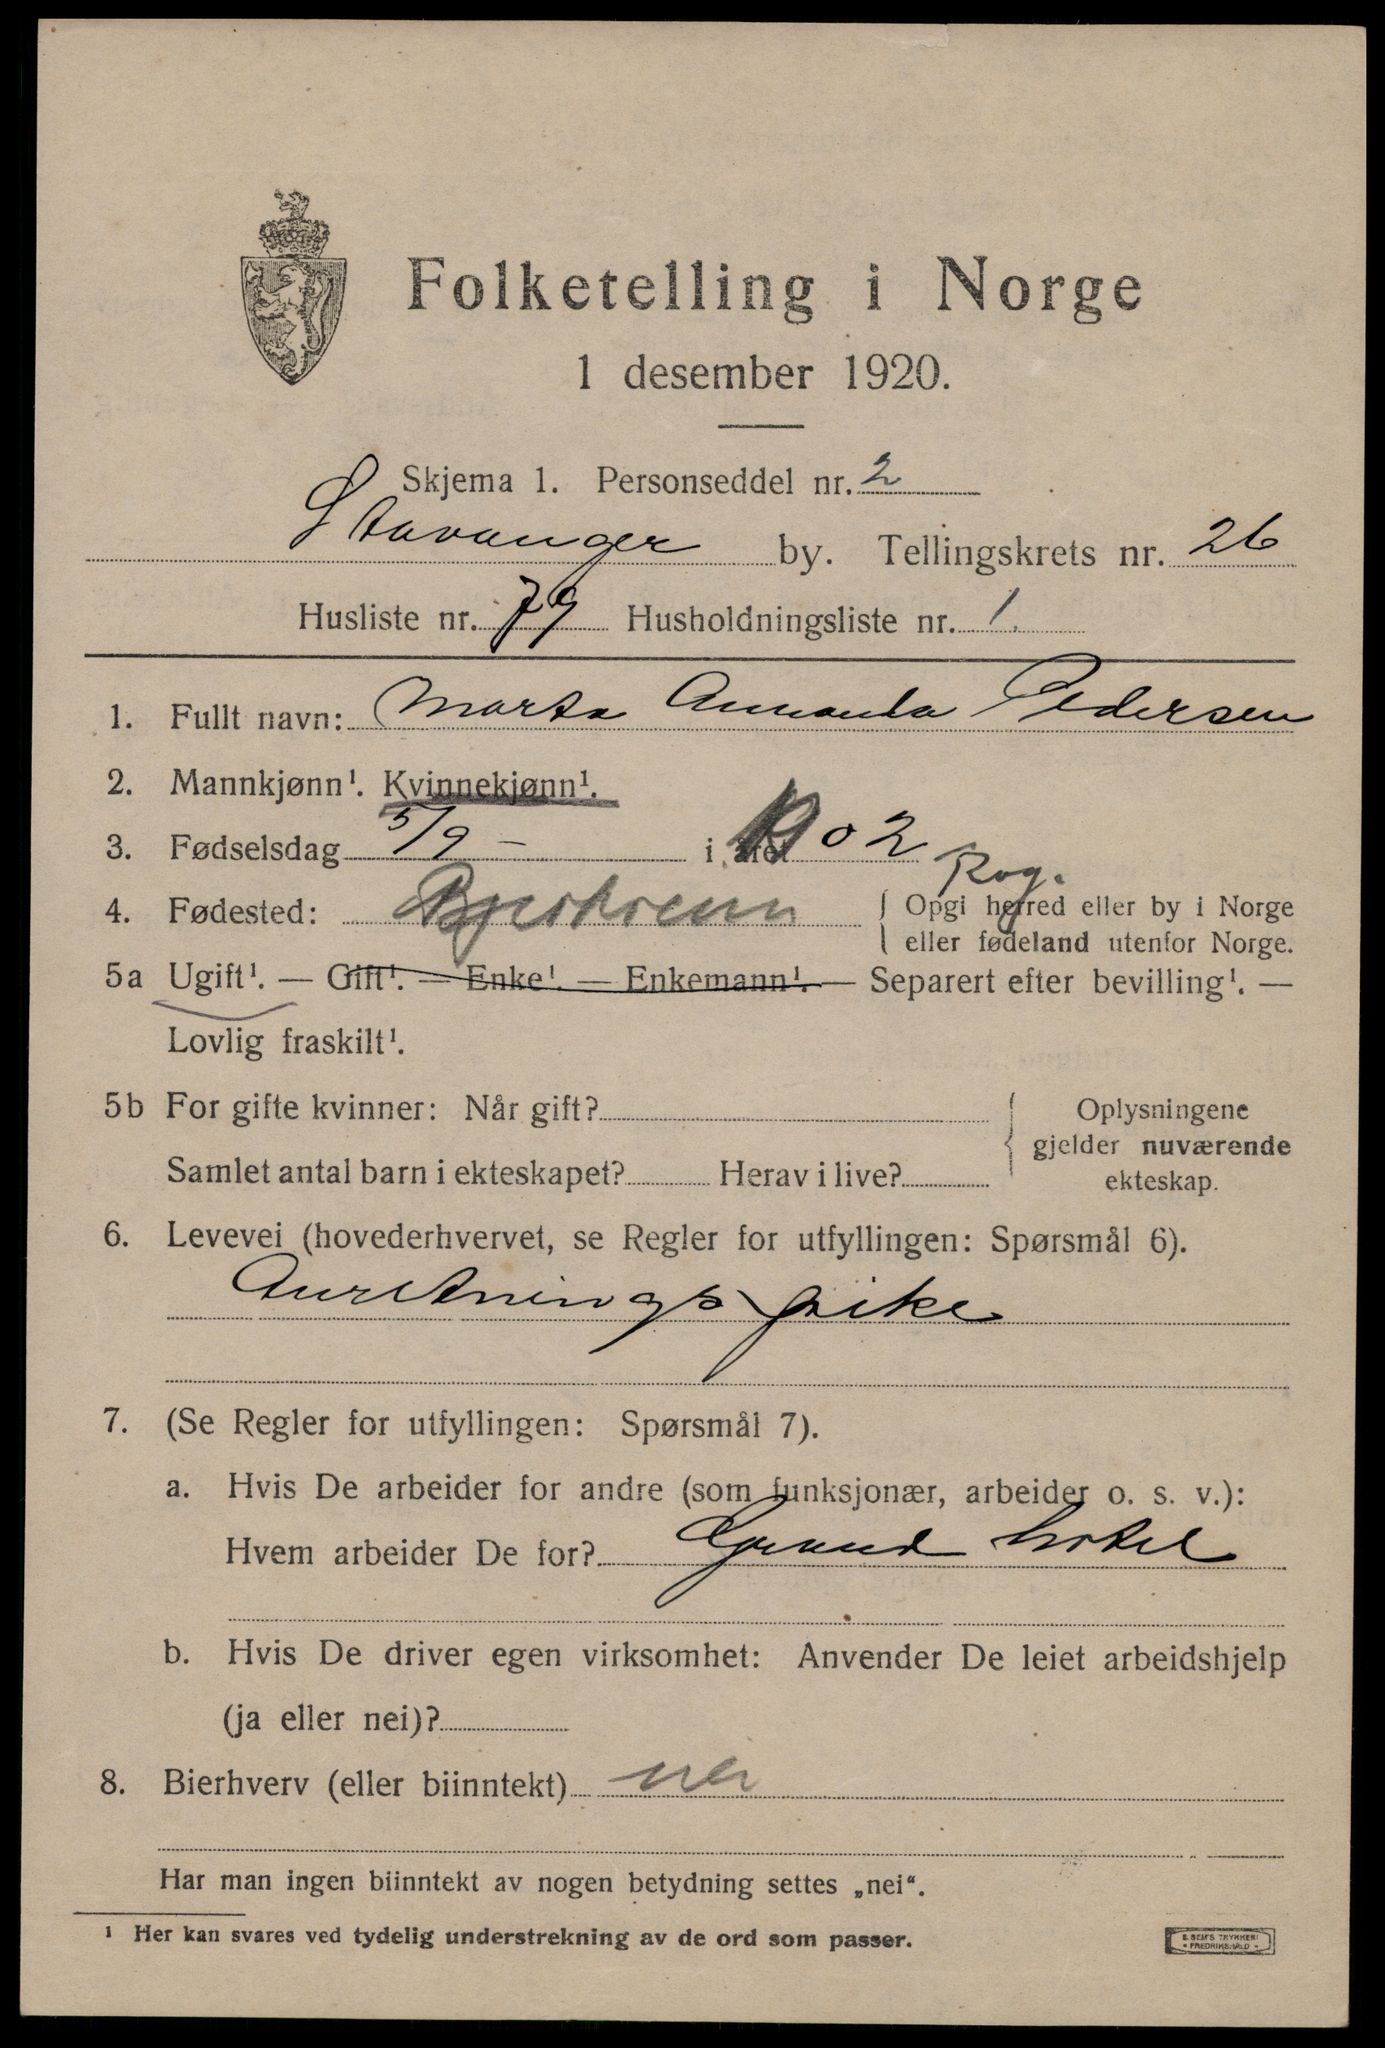 Folketelling i Norge
1 desember 1920.
Skjema 1. Personseddel nr. 2
Stavanger by. Tellingskrets nr. 26
Husliste nr. 79 Husholdningsliste nr. 1.
1. Fullt navn: Marta Amanda Pedersen
2. Mannkjønn¹. Kvinnekjønn¹.
3. Fødselsdag 5/9 - i året 1902
Rog.
4. Fødested: Bjerkreim { Opgi herred eller by i Norge
eller fødeland utenfor Norge.
5a Ugift¹. — Gift¹. — Enke¹. — Enkemann¹. — Separert efter bevilling¹. —
Lovlig fraskilt¹.
5b For gifte kvinner: Når gift? { Oplysningene
gjelder nuværende
Samlet antal barn i ekteskapet? Herav i live? ekteskap.
6. Levevei (hovederhvervet, se Regler for utfyllingen: Spørsmål 6).
Anretningspike
7. (Se Regler for utfyllingen: Spørsmål 7).
a. Hvis De arbeider for andre (som funksjonær, arbeider o. s. v.):
Hvem arbeider De for? Grand hotel
b. Hvis De driver egen virksomhet: Anvender De leiet arbeidshjelp
(ja eller nei)?
8. Bierhverv (eller biinntekt) nei
Har man ingen biinntekt av nogen betydning settes „nei“.
¹ Her kan svares ved tydelig understrekning av de ord som passer.
E. SEM'S TRYKKERI
FREDRIKSHALD